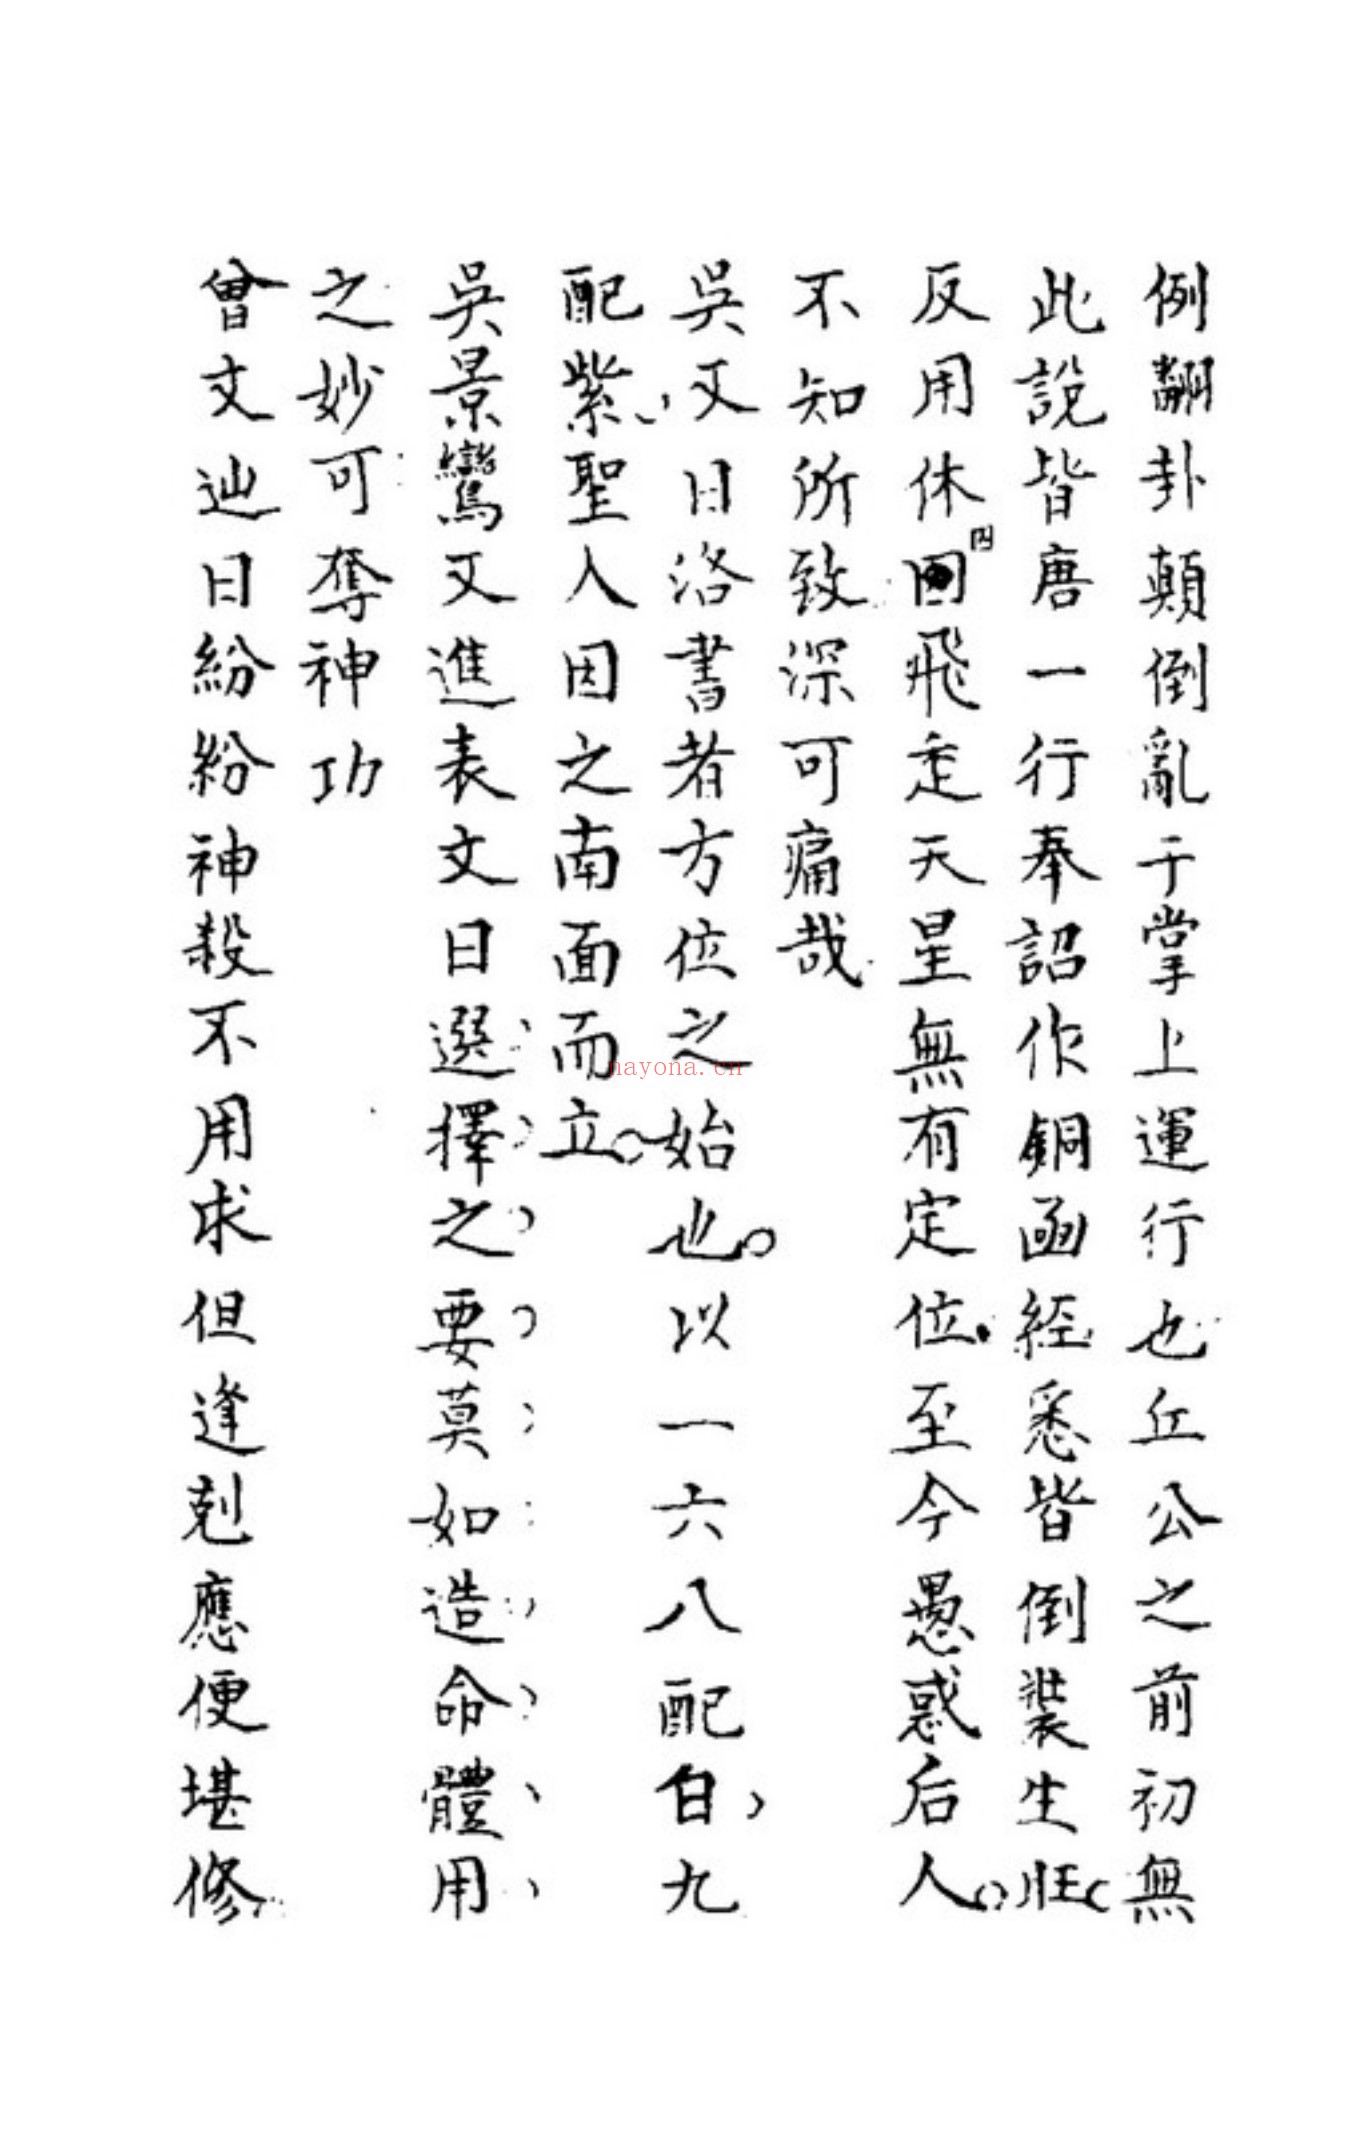 例翻卦顛倒亂于掌上運行也丘公之前初無
此說皆唐一行奉詔作銅函經悉皆倒裝生旺
反用休囚飛走天星無有定位至今愚惑后人
不知所致深可痛哉
吳又曰洛書者方位之始也以一六八配白九
配紫聖人因之南面而立
吳景鸞又進表文曰選擇之要莫如造命體用
之妙可奪神功
曾文辿曰紛紛神殺不用求但逢剋應便堪修
nayona.cn